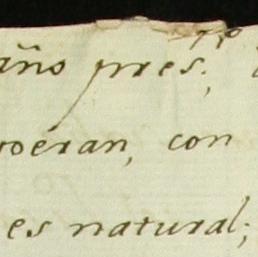 año pres;
poéran, con
es natural;